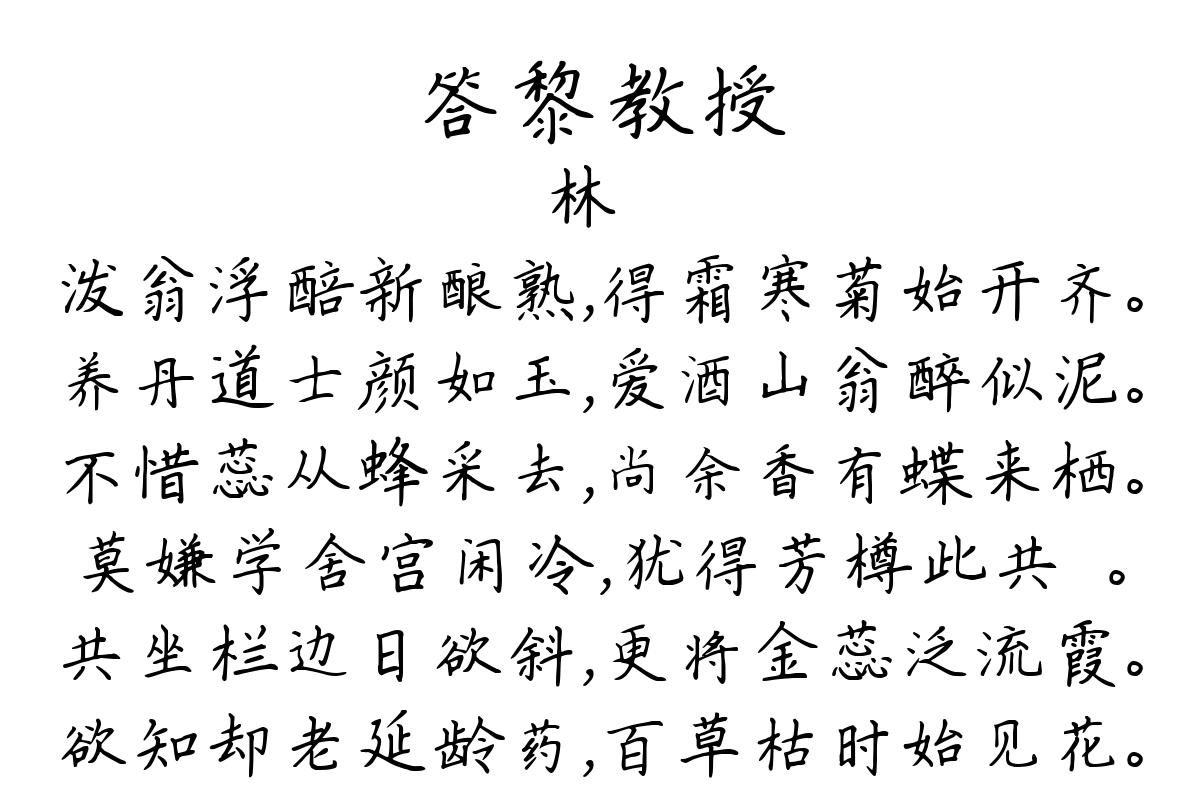 答黎教授
林
泼翁浮醅新酿熟,得霜寒菊始开齐。
养丹道士颜如玉,爱酒山翁醉似泥。
不惜蕊从蜂采去,尚余香有蝶来栖。
莫嫌学舍宫闲冷,犹得芳樽此共 。
共坐栏边日欲斜,更将金蕊泛流霞。
欲知却老延龄药,百草枯时始见花。